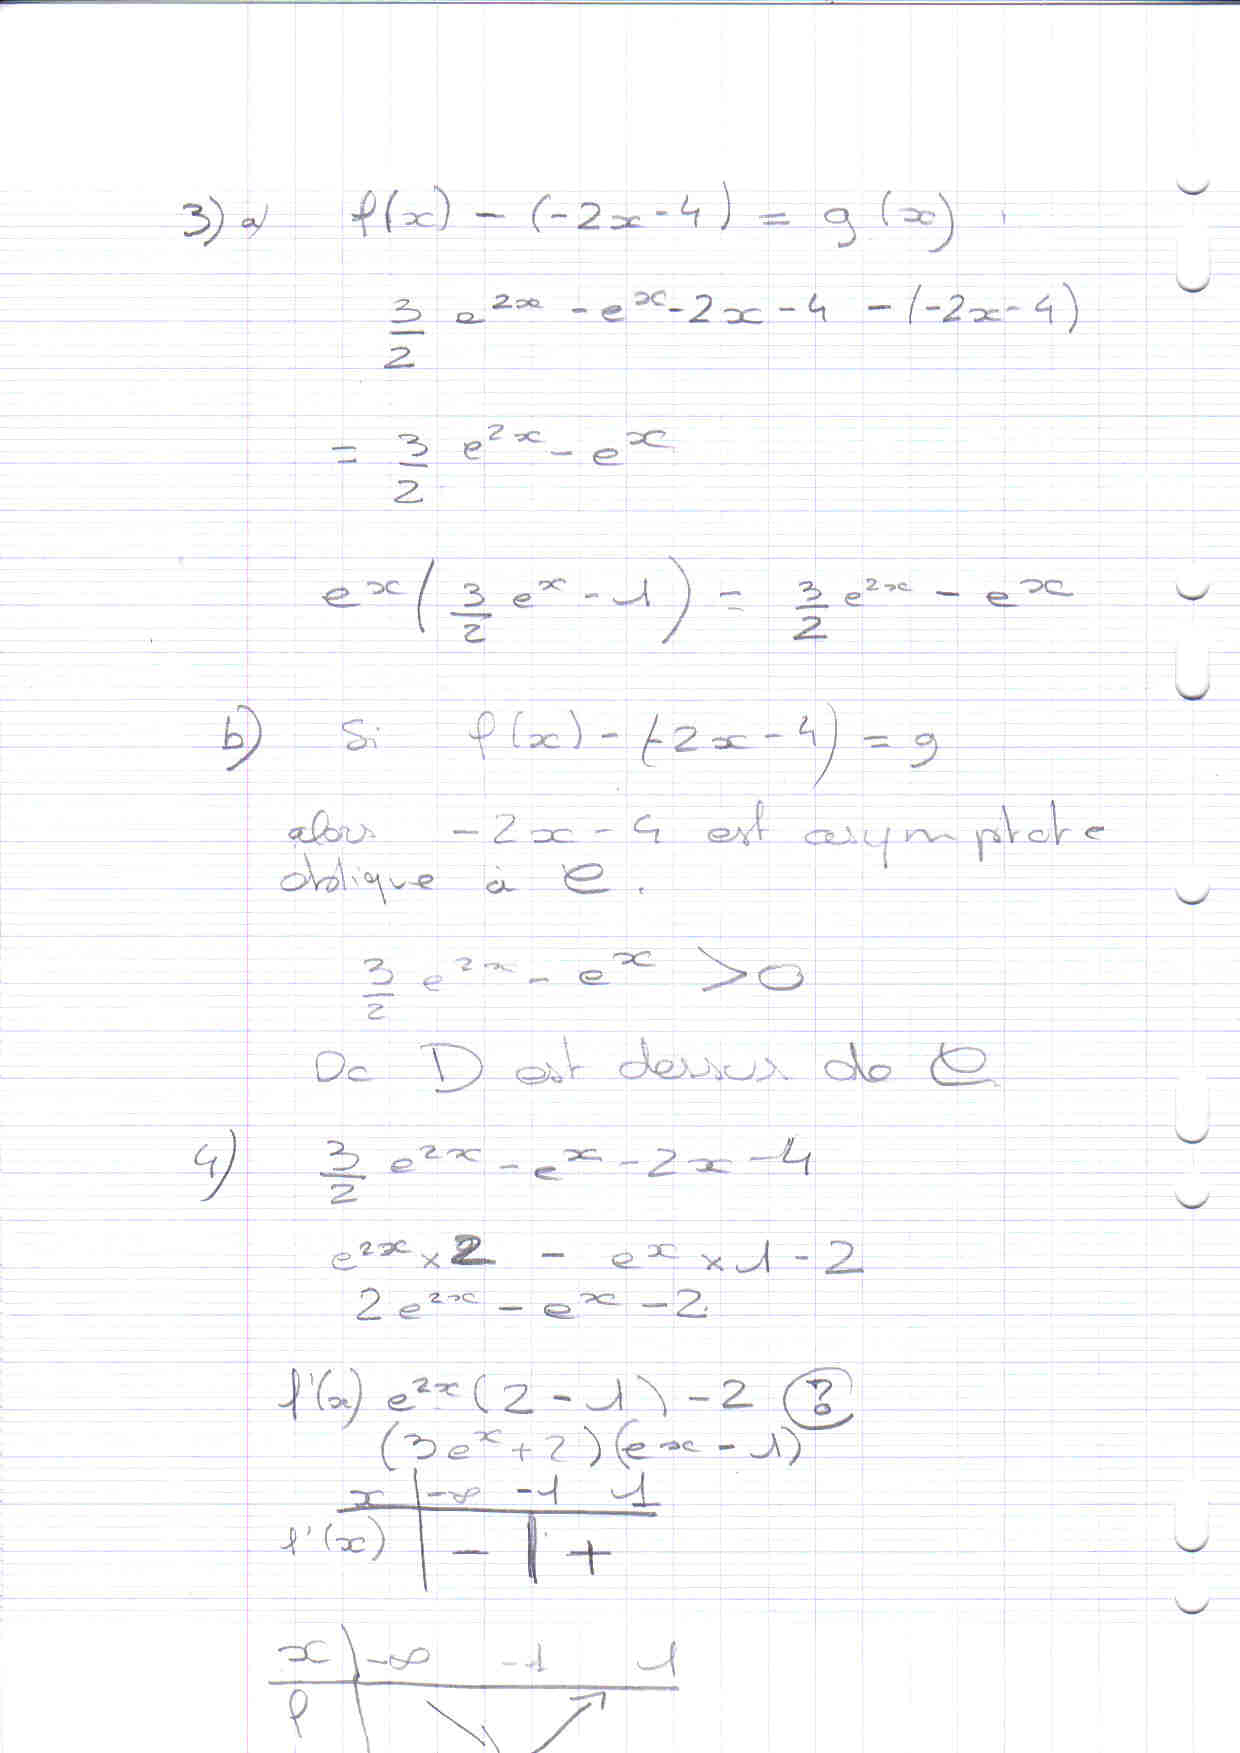 3) a) f(x) - (-2x-4) = g(x)
3/2 e^2x - e^x - 2x - 4 - (-2x-4)
= 3/2 e^2x - e^x
e^x ( 3/2 e^x - 1 ) = 3/2 e^2x - e^x
b) Si f(x) - (-2x-4) = g
alors -2x-4 est asymptote
oblique à C.
3/2 e^2x - e^x > 0
Dc D est dessus de C
4) 3/2 e^2x - e^x - 2x - 4
e^2x × 2 - e^x × 1 - 2
2e^2x - e^x - 2
f'(x) e^2x (2 - 1) - 2 ?
(3e^x + 2)(ex - 1)
x | -∞ -1 1
f'(x) | - | +
x | -∞ -1 1
f